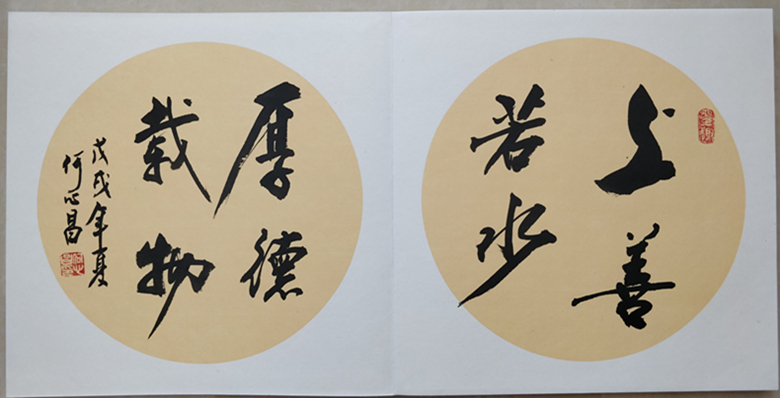 上善
若水
厚德
载物
戊戌年夏
何心昌